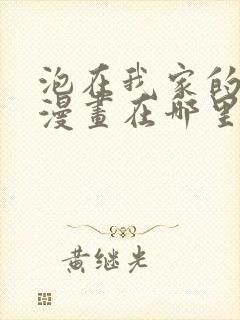 泡在我家的
漫畫在哪里
黄继光